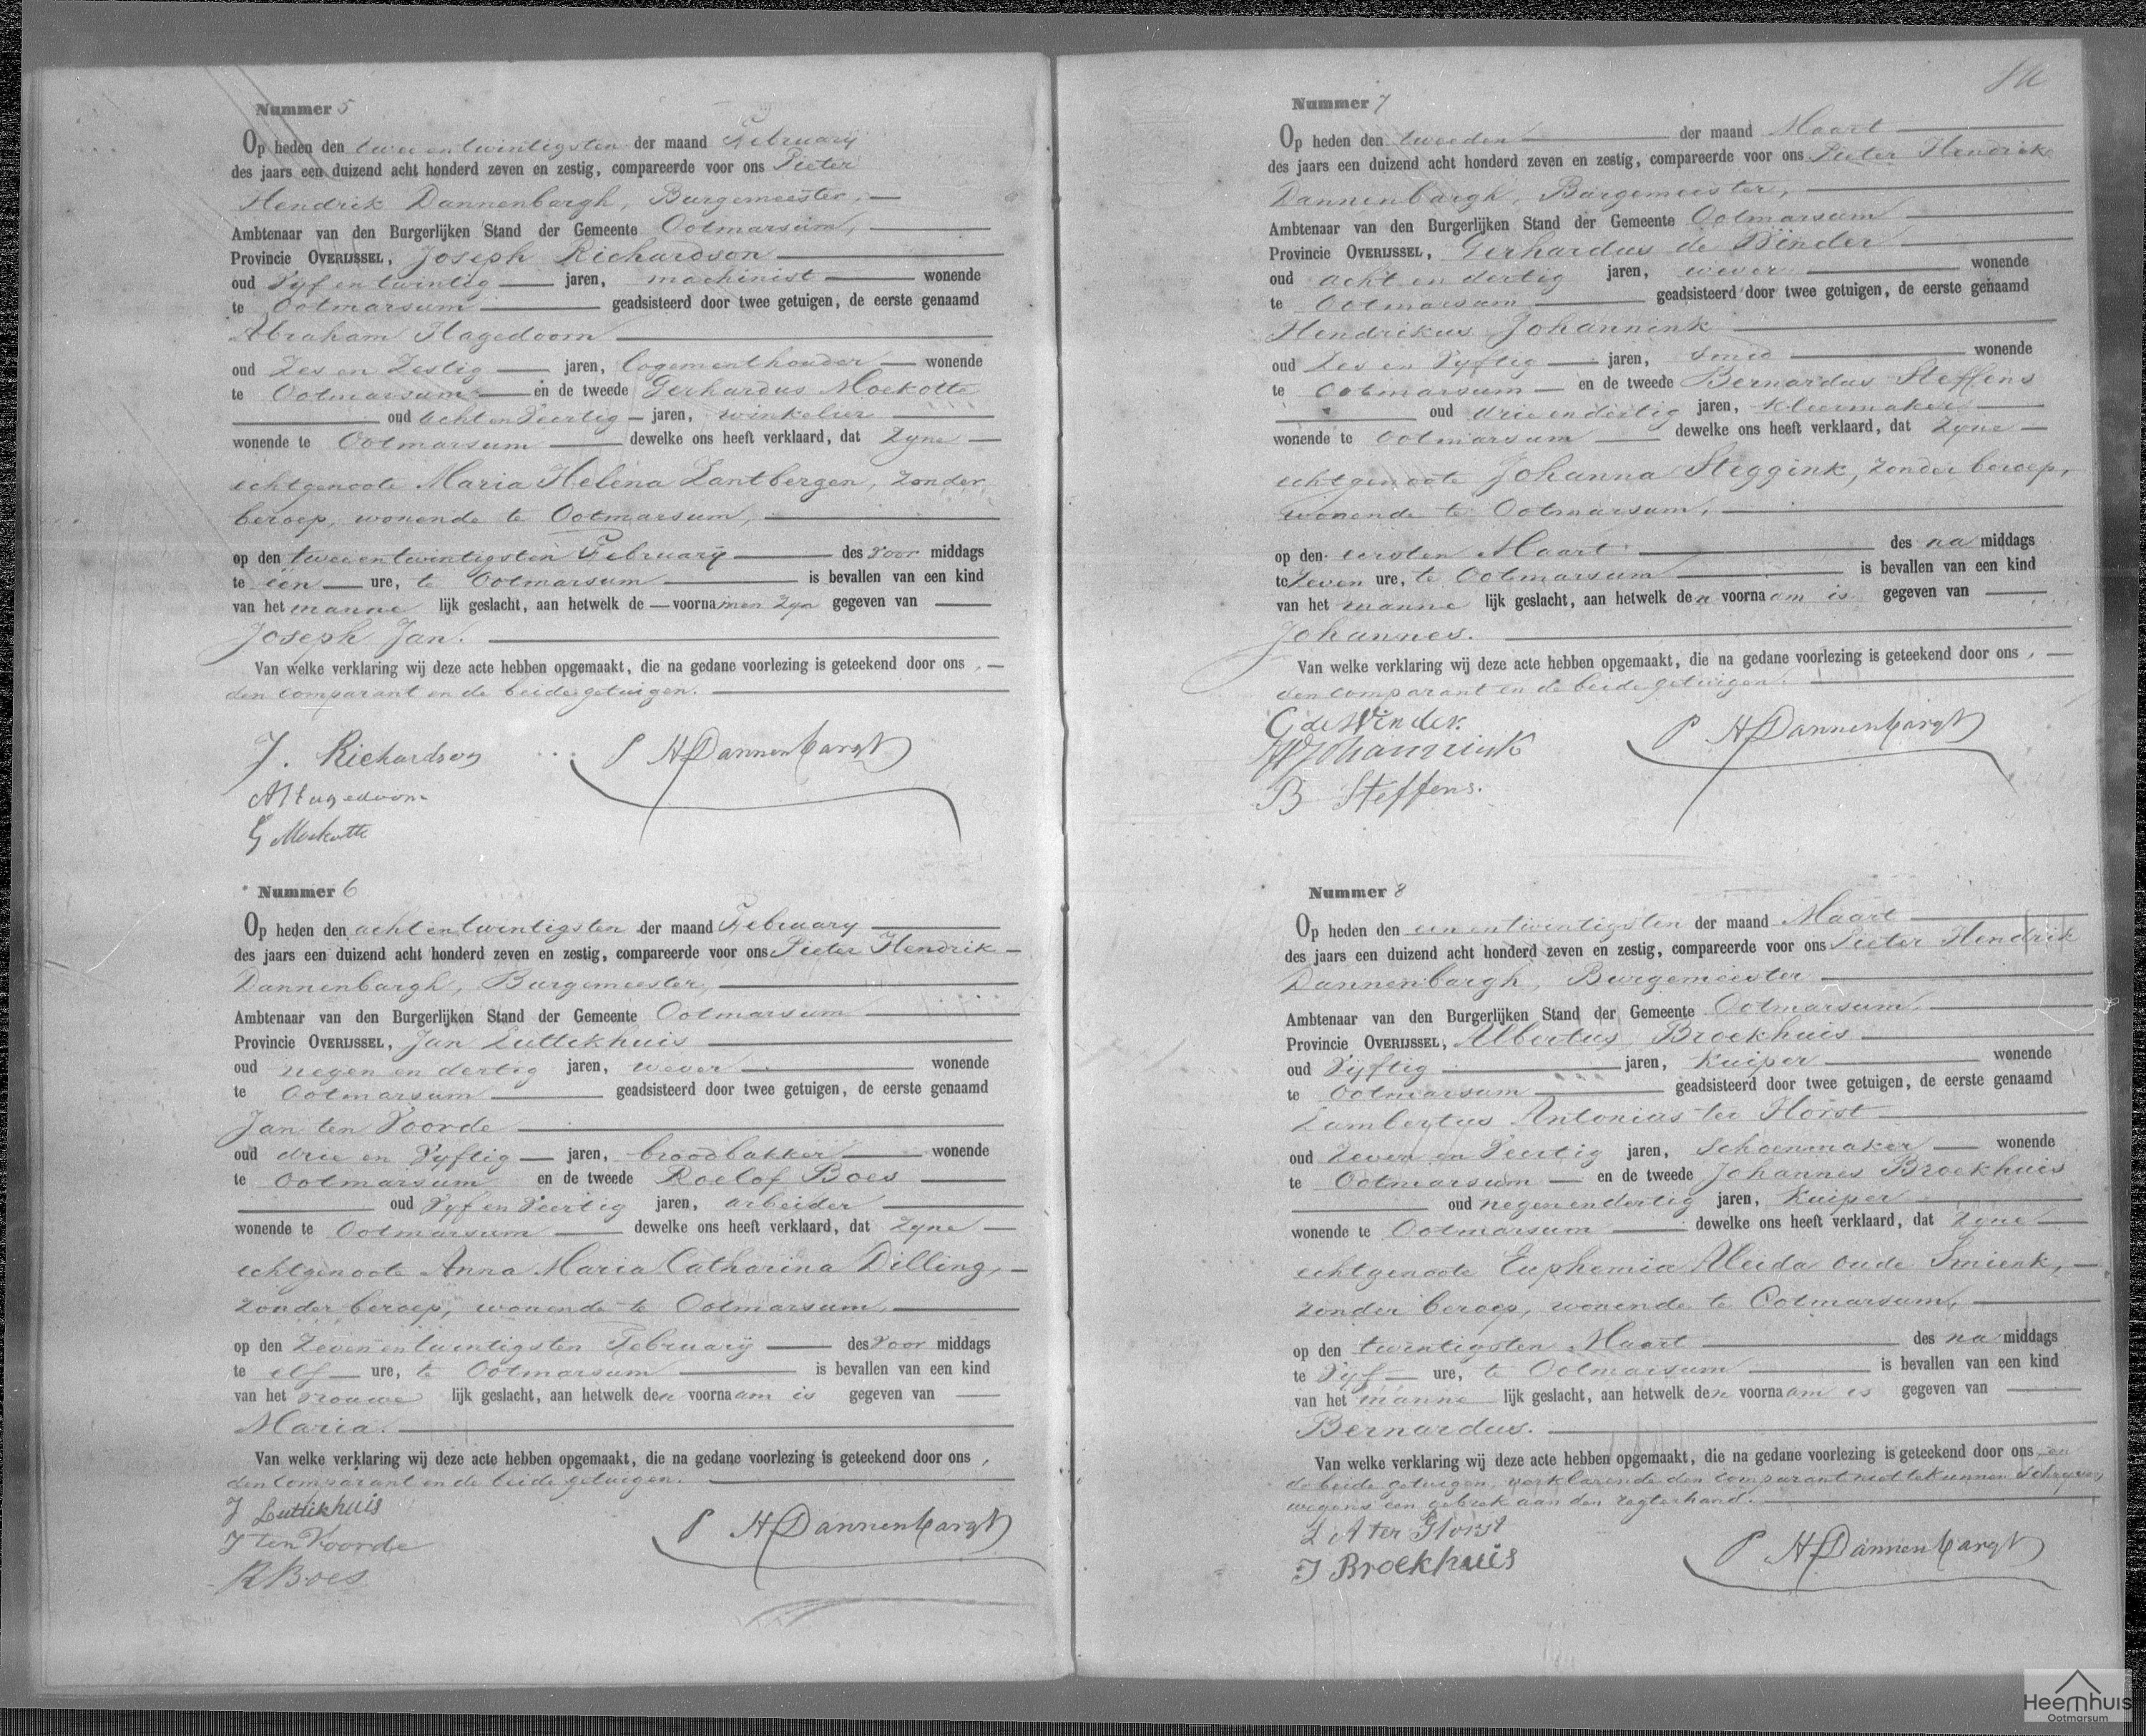 Nummer 5
Op heden den twee en twintigsten der maand February
des jaars een duizend acht honderd zeven en zestig, compareerde voor ons Pieter
Hendrik Dannenbargh, Burgemeester,
Ambtenaar van den Burgerlijken Stand der Gemeente Ootmarsum,
Provincie OVERIJSSEL, Joseph Richardson
oud Vyf en twintig jaren, machinist wonende
te Ootmarsum geadsisteerd door twee getuigen, de eerste genaamd
Abraham Hagedoorn
oud Zes en Zestig jaren, logementhouder wonende
te Ootmarsum en de tweede Gerhardus Moekotte
oud acht en Veertig jaren, winkelier
wonende te Ootmarsum dewelke ons heeft verklaard, dat Zyne
echtgenoote Maria Helena Lantbergen, zonder
beroep, wonende te Ootmarsum,
op den twee en twintigsten February des Voor middags
te één ure, te Ootmarsum is bevallen van een kind
van het manne lijk geslacht, aan hetwelk de voornamen Zyn gegeven van
Joseph Jan.
Van welke verklaring wij deze acte hebben opgemaakt, die na gedane voorlezing is geteekend door ons,
den comparant en de beide getuigen.
J. Richardson P H Dannenbargh
A Hagedoorn
G Moekotte
Nummer 6
Op heden den acht en twintigsten der maand February
des jaars een duizend acht honderd zeven en zestig, compareerde voor ons Pieter Hendrik
Dannenbargh, Burgemeester,
Ambtenaar van den Burgerlijken Stand der Gemeente Ootmarsum
Provincie OVERIJSSEL, Jan Luttikhuis
oud negen en dertig jaren, wever wonende
te Ootmarsum geadsisteerd door twee getuigen, de eerste genaamd
Jan ten Voorde
oud drie en Vyftig jaren, broodbakker wonende
te Ootmarsum en de tweede Roelof Boes
oud Vyf en Veertig jaren, arbeider
wonende te Ootmarsum dewelke ons heeft verklaard, dat Zyne
echtgenoote Anna Maria Catharina Dilling,
zonder beroep, wonende te Ootmarsum,
op den Zeven en twintigsten February des Voor middags
te elf ure, te Ootmarsum is bevallen van een kind
van het vrouwe lijk geslacht, aan hetwelk den voornaam is gegeven van
Maria.
Van welke verklaring wij deze acte hebben opgemaakt, die na gedane voorlezing is geteekend door ons,
den comparant en de beide getuigen.
J Luttikhuis
J ten Voorde P H Dannenbargh
R Boes
Nummer 7
Op heden den tweeden der maand Maart
des jaars een duizend acht honderd zeven en zestig, compareerde voor ons Pieter Hendrik
Dannenbargh, Burgemeester,
Ambtenaar van den Burgerlijken Stand der Gemeente Ootmarsum
Provincie OVERIJSSEL, Gerhardus de Winder
oud acht en dertig jaren, wever wonende
te Ootmarsum geadsisteerd door twee getuigen, de eerste genaamd
Hendrikus Johannink
oud Zes en Vyftig jaren, Smid wonende
te Ootmarsum en de tweede Bernardus Steffens
oud drie en dertig jaren, kleermaker
wonende te Ootmarsum dewelke ons heeft verklaard, dat Zyne
echtgenoote Johanna Steggink, zonder beroep,
wonende te Ootmarsum,
op den eersten Maart des na middags
te Zeven ure, te Ootmarsum is bevallen van een kind
van het manne lijk geslacht, aan hetwelk den voornaam is gegeven van
Johannes.
Van welke verklaring wij deze acte hebben opgemaakt, die na gedane voorlezing is geteekend door ons,
den comparant en de beide getuigen.
G de Winder. P H Dannenbargh
H Johannink
B Steffens.
Nummer 8
Op heden den een en twintigsten der maand Maart
des jaars een duizend acht honderd zeven en zestig, compareerde voor ons Pieter Hendrik
Dannenbargh, Burgemeester
Ambtenaar van den Burgerlijken Stand der Gemeente Ootmarsum,
Provincie OVERIJSSEL, Albertus Broekhuis
oud Vyftig jaren, Kuiper wonende
te Ootmarsum geadsisteerd door twee getuigen, de eerste genaamd
Lambertus Antonius ter Horst
oud Zeven en Veertig jaren, Schoenmaker wonende
te Ootmarsum en de tweede Johannes Broekhuis
oud negen en dertig jaren, Kuiper
wonende te Ootmarsum dewelke ons heeft verklaard, dat Zyne
echtgenoote Euphemia Aleida oude Smienk,
zonder beroep, wonende te Ootmarsum,
op den twintigsten Maart des na middags
te Vyf ure, te Ootmarsum is bevallen van een kind
van het manne lijk geslacht, aan hetwelk den voornaam is gegeven van
Bernardus.
Van welke verklaring wij deze acte hebben opgemaakt, die na gedane voorlezing is geteekend door ons en
de beide getuigen, verklarende den comparant niet te kunnen schryven
wegens een gebrek aan den regterhand.
L A ter Horst
J Broekhuis P H Dannenbargh
Heemhuis
Ootmarsum